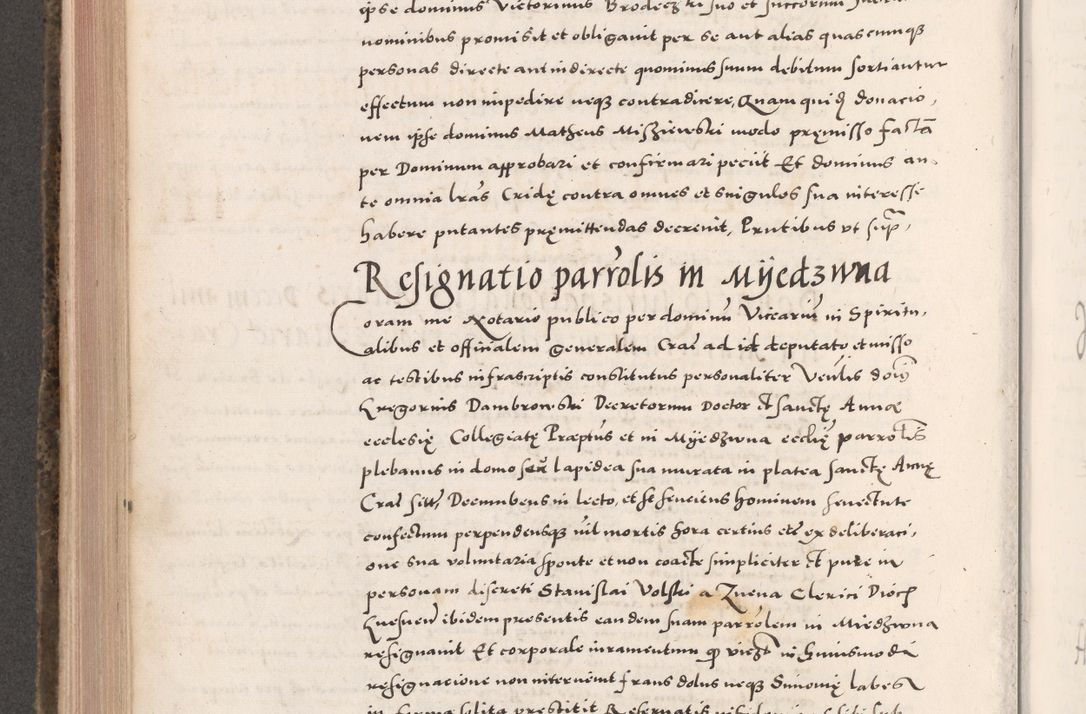 ipse dominus Victorinus Brodeczki suo et successorum
nominibus promisit et obligavit per se aut alias quascunq3
personas directe aut indirecte quominus suum debitum sortiantur
effectum non impedire neq3 contradicere, Quam quid donacio,
nem ipse dominus Matheus Misziewski modo pręmisso factā
per Dominum approbari et confirmari peciit Et dominus an
te omnia lrās Cridę contra omnes et singulos sua interesse
habere putantes pręmittendas decrevit, Pntibus ut supra,
Resignatio parrolis in Mÿedzwna
Coram me Notario publico per dominū Vicariū in Spiritu,
alibus et officialem generalem Craē ad id deputato et misso
ac testibus infrascriptis constitutus personaliter Venlis domī
Gregorius Dambrowski Decretorum Doctor et Sanctę Annæ
ecclesię Collegiatę Præptus et in Mÿedzwna ecclię parrolis
plebanus in domo sua lapidea sua murata in platea Sanctę Annę
Craē sitt, Decumbens in lecto, et se senciens hominem senectute
confectum perpendensq3 nil mortis hora certius etc ex deliberaci,
one sua voluntaria sponte et non coacte simpliciter et pure in
personam discreti Stanislai Volski a Znena Clerici Dioch
Gnesnen ibidem presentis eandem suam parrolem in Miedzwna
resignavit Et corporale iuramentum in huiusmodi
resignacione non intervenit fraus dolus neq3 Simonię labes
in forma solita prestitit